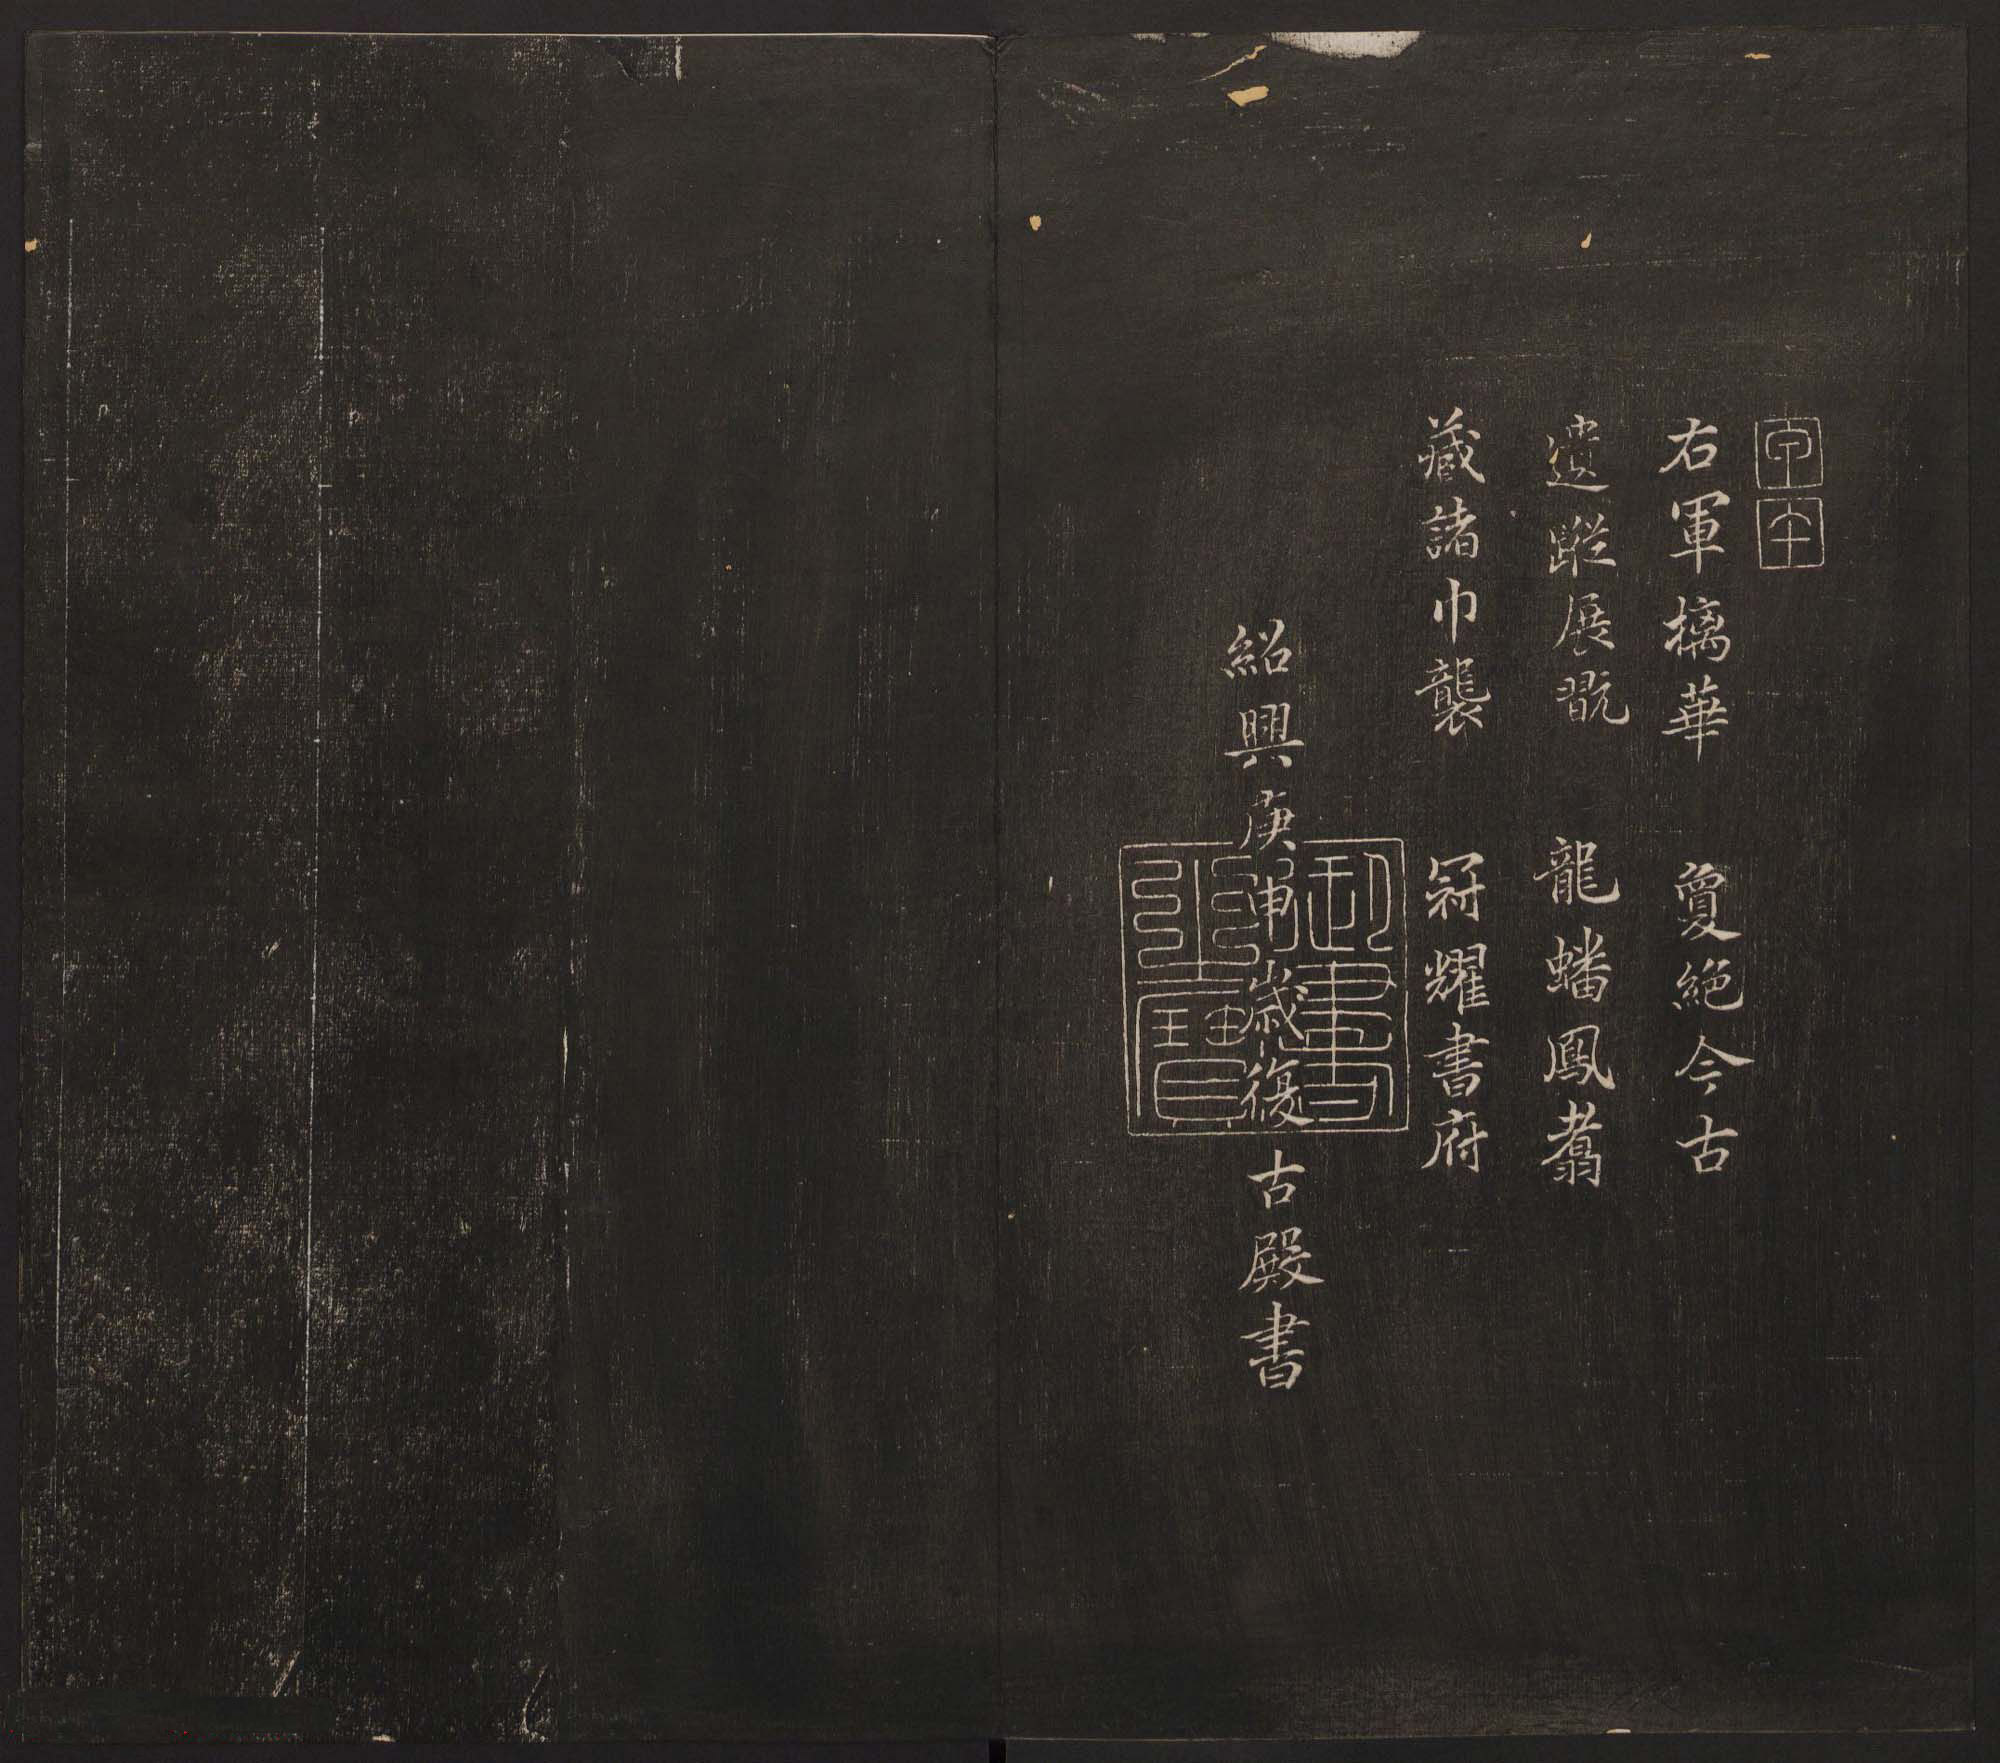 右軍摛華 敻絕今古
遺蹤展翫 龍蟠鳳翥
藏諸巾襲 冠耀書府
紹興庚申歲復古殿書
御書之寶